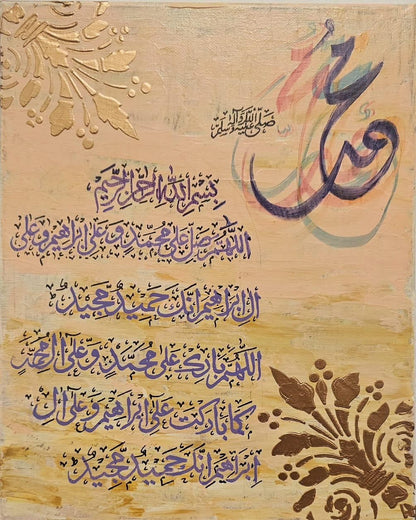 محمد
صَلَّى اللّٰهُ عَلَيْهِ وَآلِهٖ وَسَلَّمَ
بِسْمِ اللّٰهِ الرَّحْمٰنِ الرَّحِيْمِ
اَللّٰهُمَّ صَلِّ عَلٰى مُحَمَّدٍ وَّ عَلٰى اِبْرَاهِيْمَ وَ عَلٰى
اٰلِ اِبْرَاهِيْمَ اِنَّكَ حَمِيْدٌ مَّجِيْدٌ
اَللّٰهُمَّ بَارِكْ عَلٰى مُحَمَّدٍ وَّ عَلٰى اٰلِ مُحَمَّدٍ
كَمَا بَارَكْتَ عَلٰى اِبْرَاهِيْمَ وَ عَلٰى اٰلِ
اِبْرَاهِيْمَ اِنَّكَ حَمِيْدٌ مَّجِيْدٌ